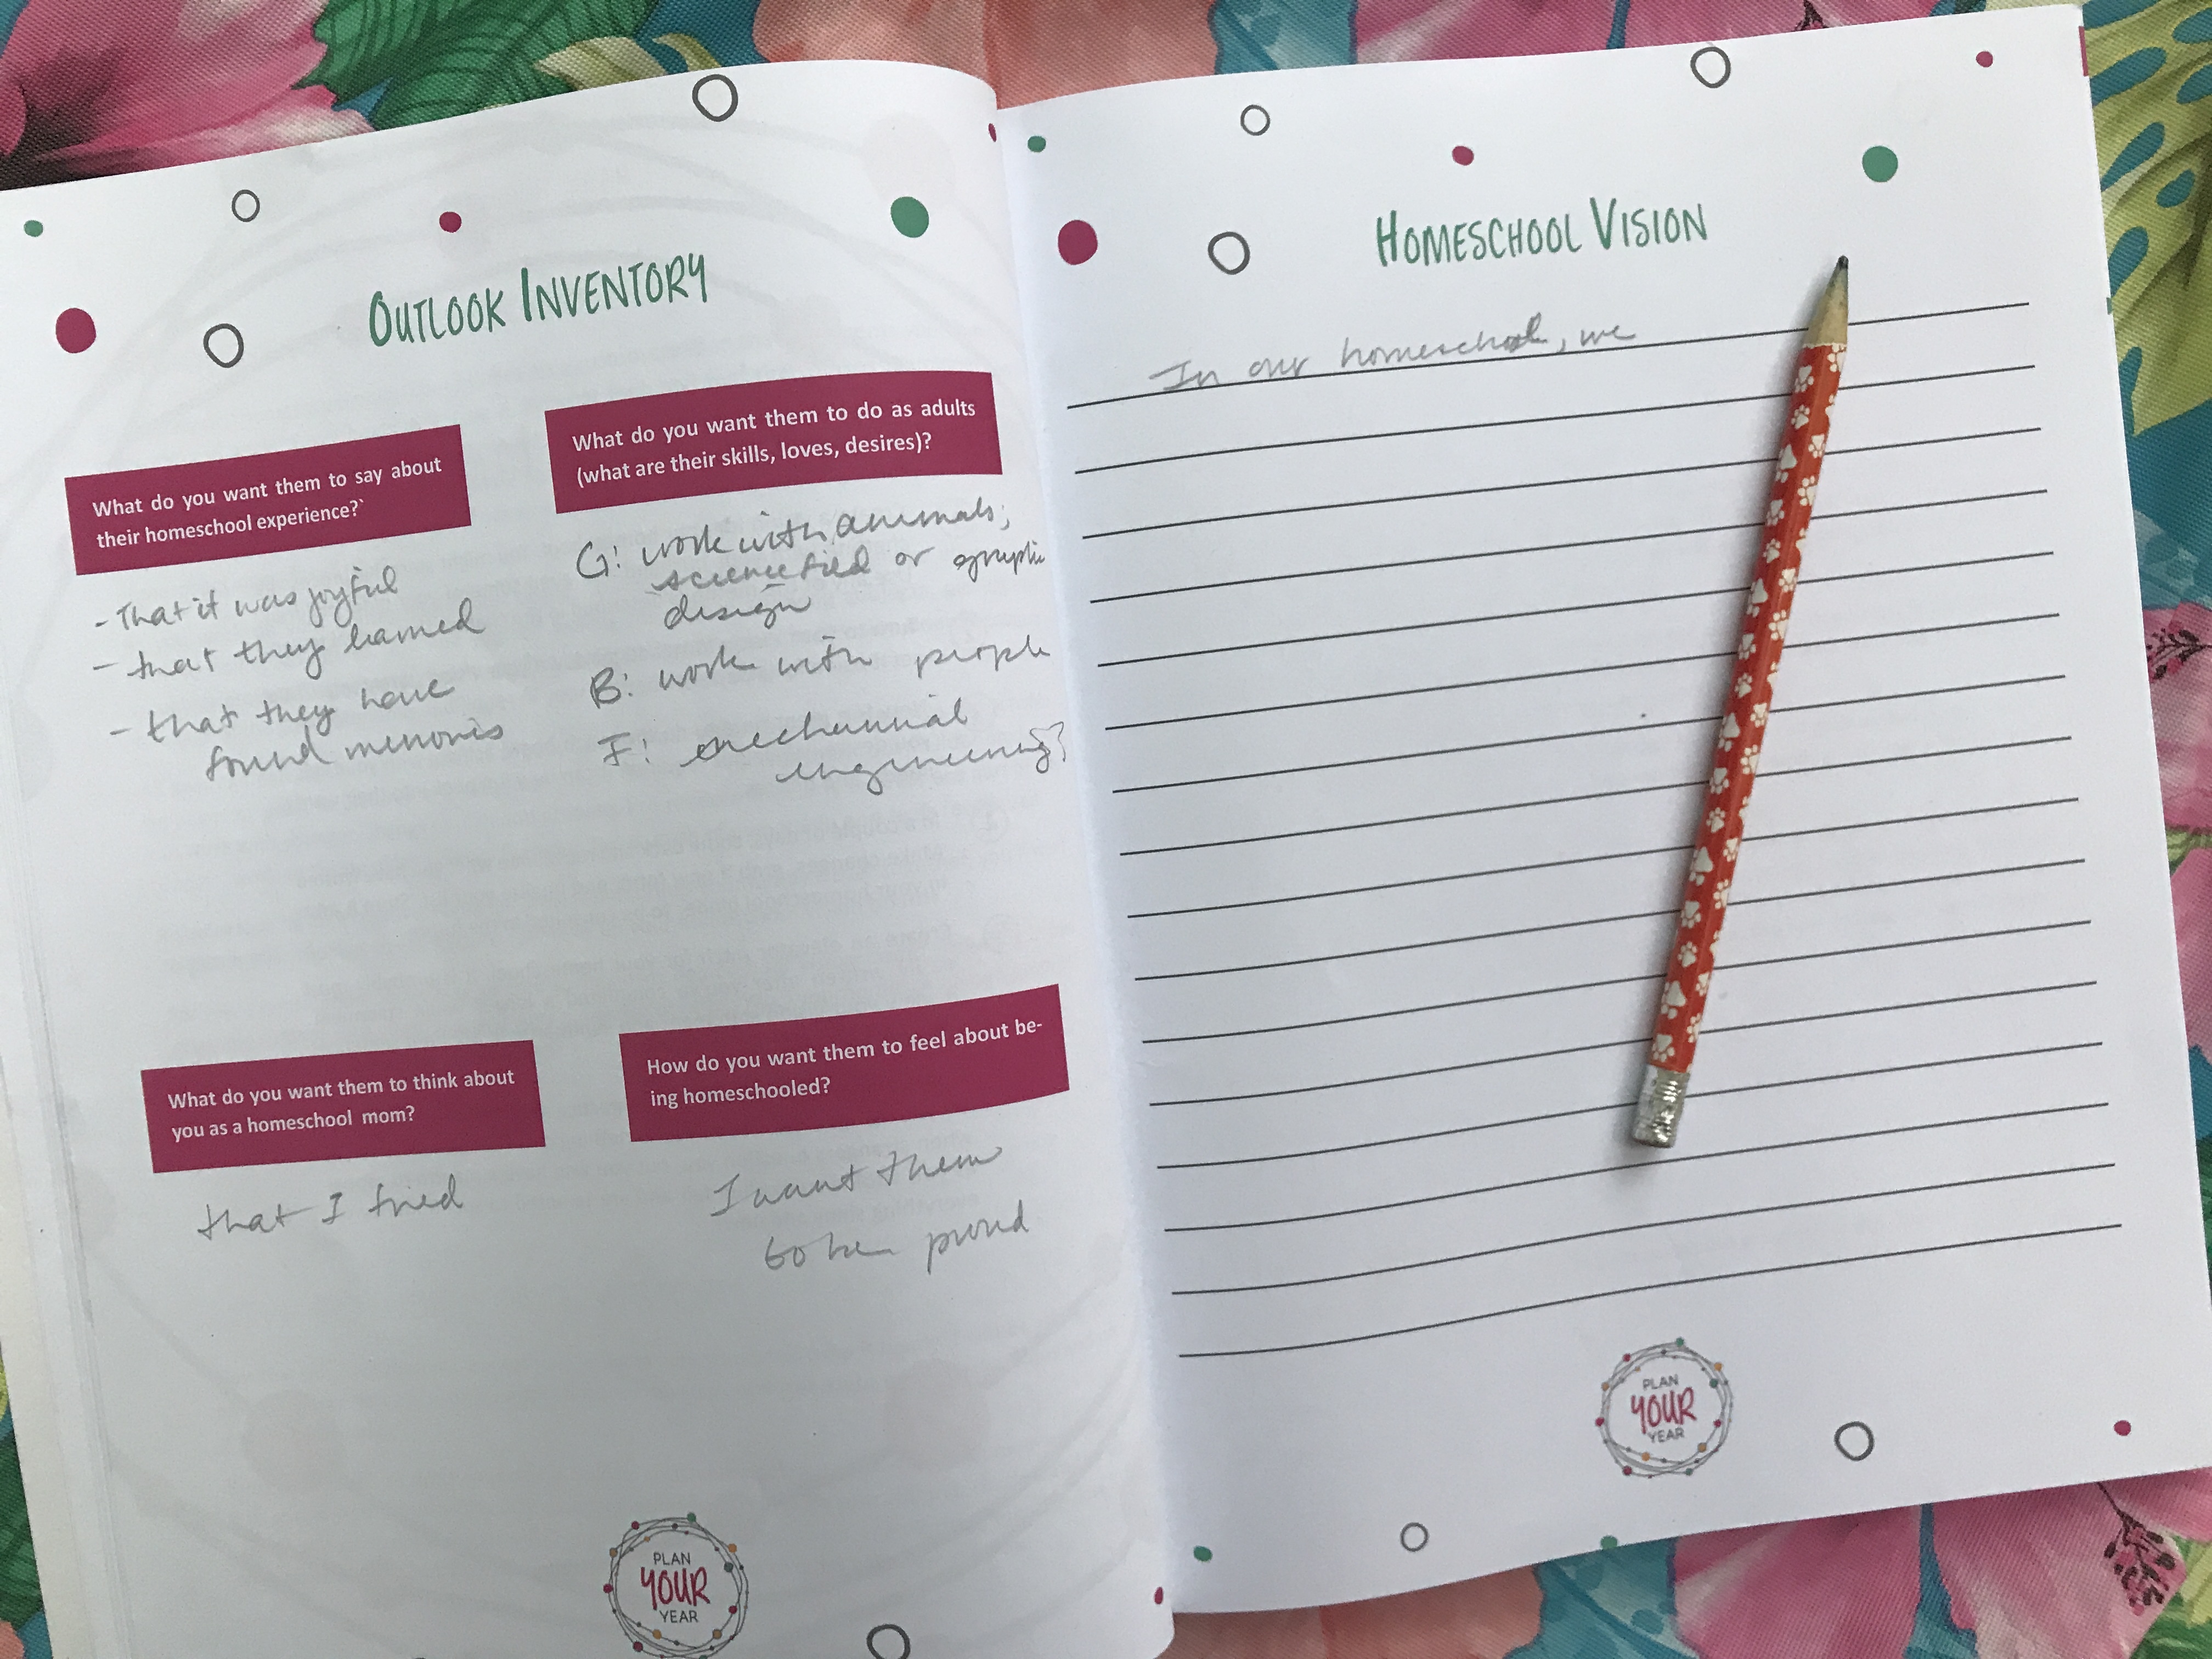 OUTLOOK INVENTORY
What do you want them to say about
their homeschool experience?`
- That it was joyful
- that they learned
- that they have
found memories
What do you want them to do as adults
(what are their skills, loves, desires)?
G: work with animals,
science field or graphic
design
B: work with people
F: mechanical
engineering?
What do you want them to think about
you as a homeschool mom?
that I tried
How do you want them to feel about be-
ing homeschooled?
I want them
to be proud
PLAN
YOUR
YEAR
HOMESCHOOL VISION
In our homeschool, we
PLAN
YOUR
YEAR